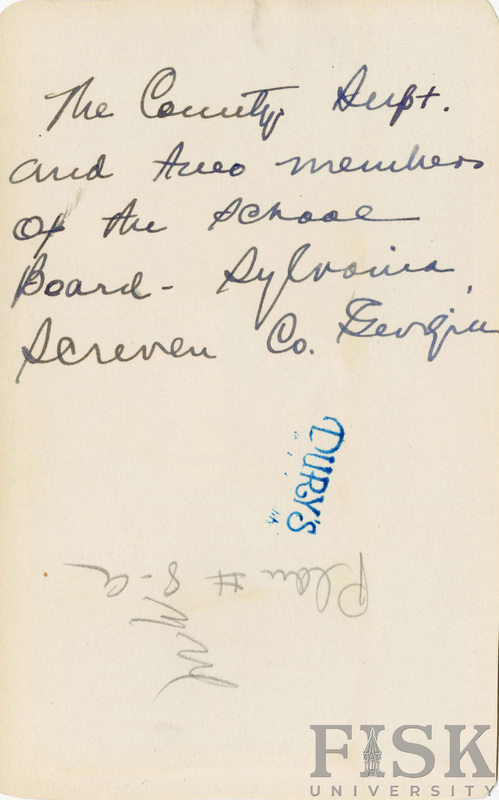 The County Supt.
and two members
of the School
Board - Sylvania,
Screven Co. Georgia
DURY'S
Plan # 8-a
FISK
UNIVERSITY